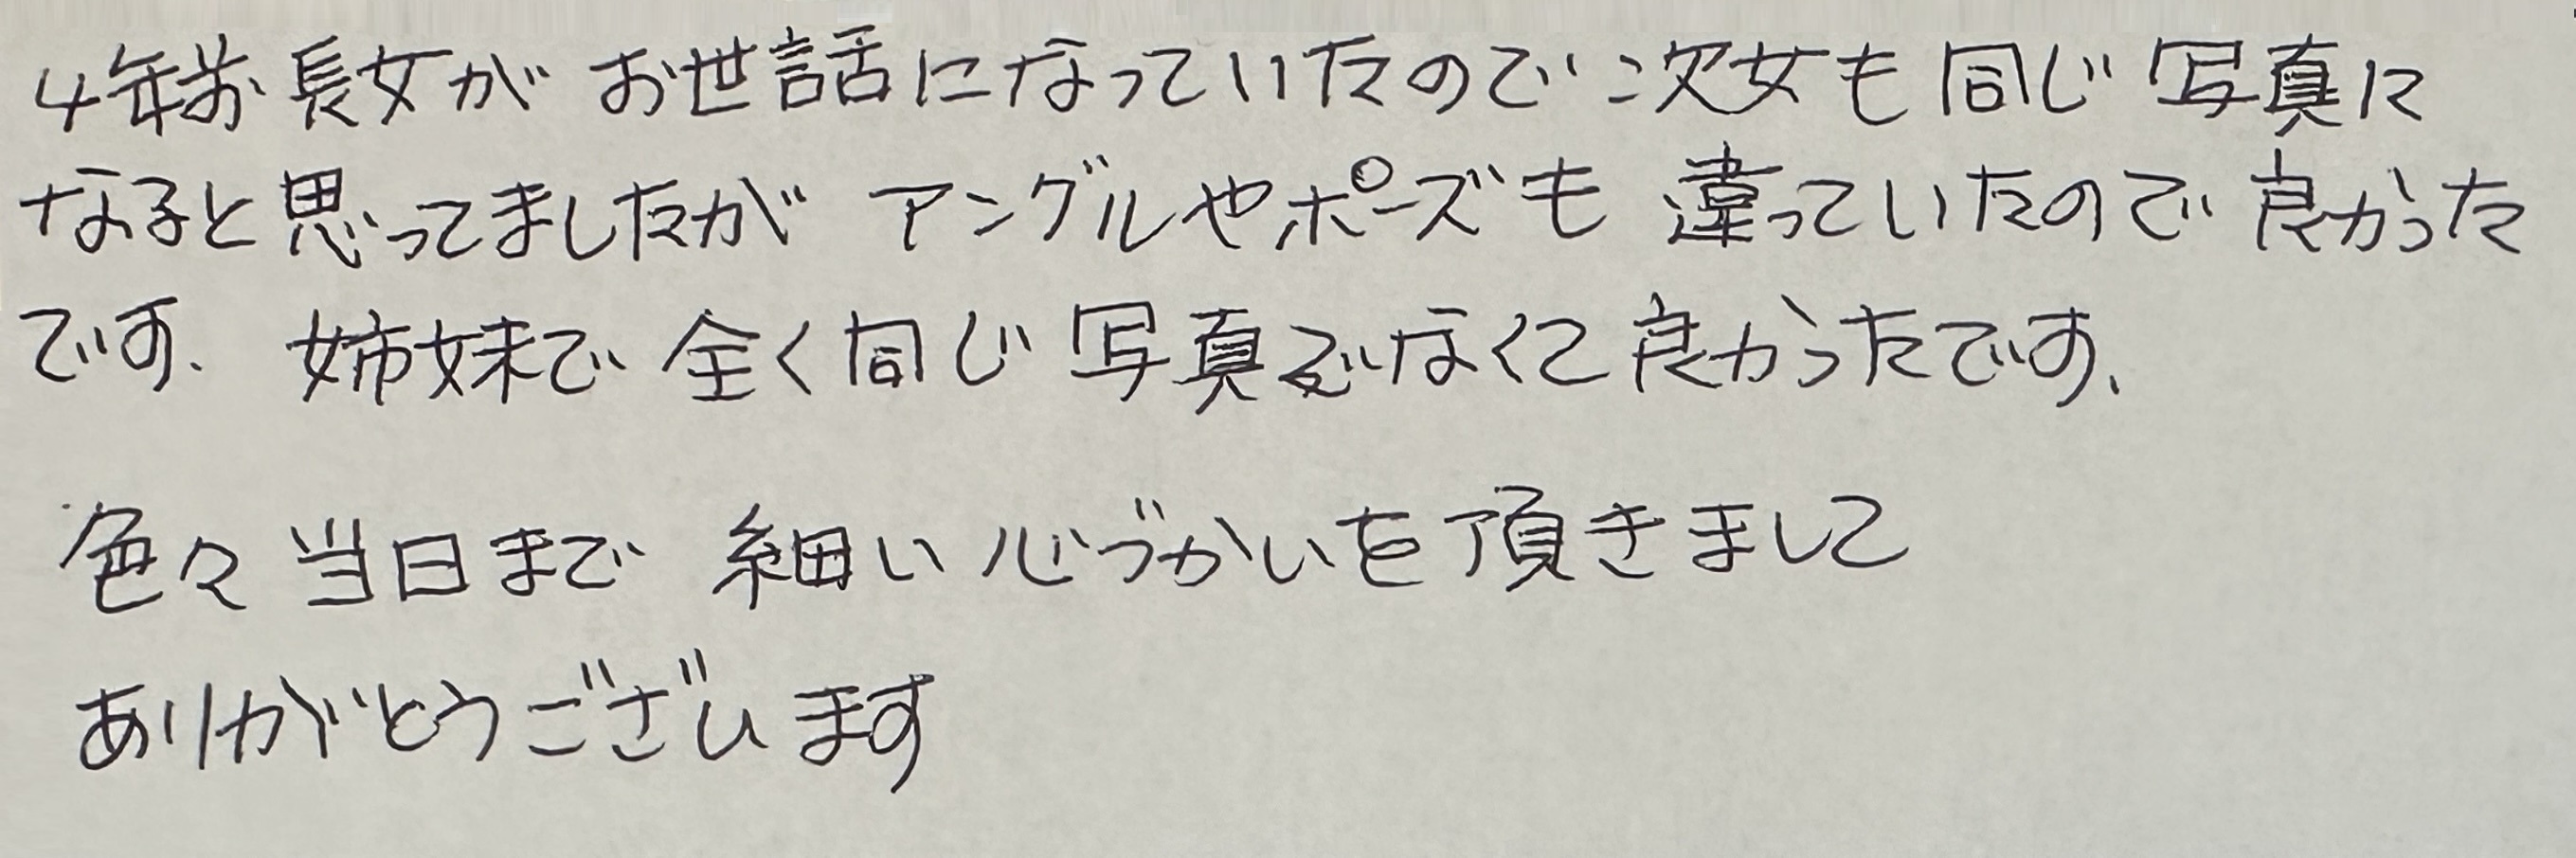 4年前長女が お世話になっていたので次女も同じ写真に
なると思ってましたが アングルやポーズも 違っていたので良かった
です。 姉妹で 全く同じ写真でなくて良かったです。
色々当日まで 細い心づかいを頂きまして
ありがとうございます